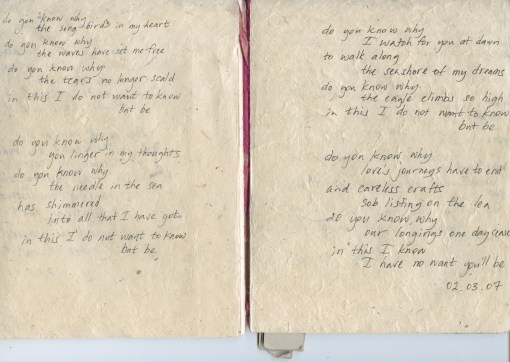 do you know why
the song birds in my heart
do you know why
the waves have set me free
do you know why
the tears no longer scald
in this I do not want to know
but be
do you know why
you linger in my thoughts
do you know why
the needle in the sea
has shimmered
into all that I have got
in this I do not want to know
but be
do you know why
I watch for you at dawn
to walk along
the seashore of my dreams
do you know why
the eagle climbs so high
in this I do not want to know
but be
do you know why
love's journeys have to end
and careless crafts
sob listing on the lea
do you know why
our longings one day cease
in this I know
I have no want you'll be
02.03.07